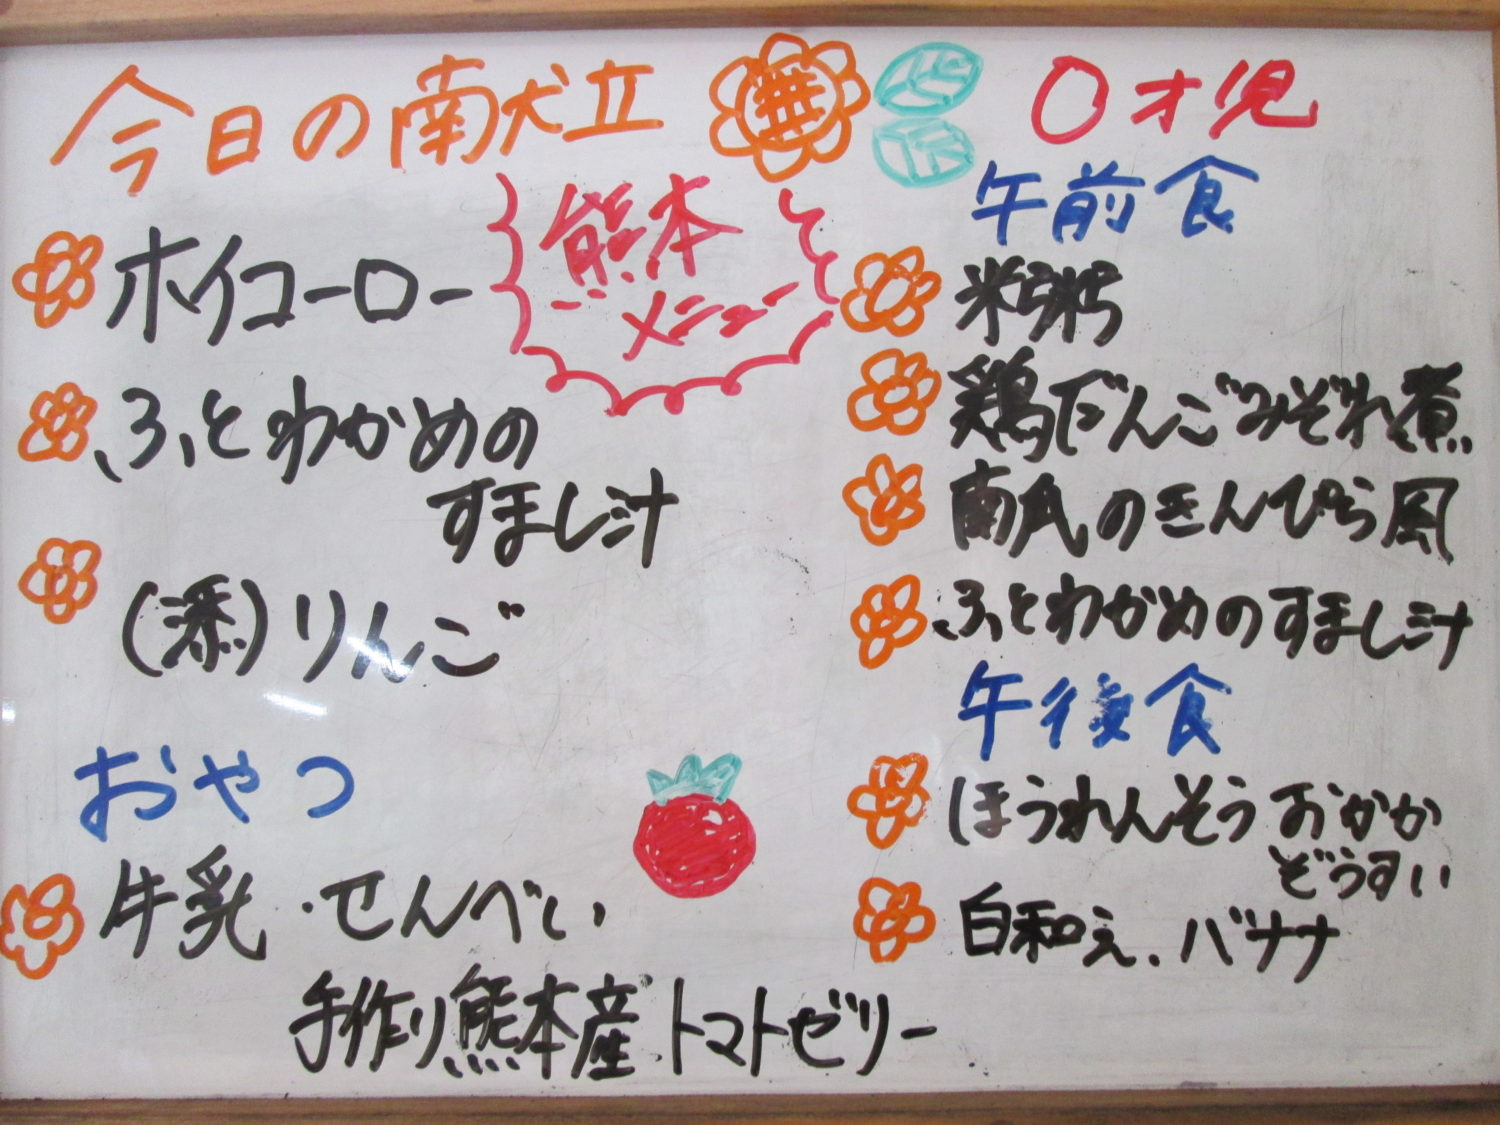 今日の献立
華
熊本
メニュー
ホイコーロー
ふとわかめの
すまし汁
(添)りんご
おやつ
牛乳・せんべい
手作り熊本産トマトゼリー
0才児
午前食
米粥
鶏だんごみぞれ煮
南瓜のきんぴら風
ふとわかめのすまし汁
午後食
ほうれんそうおかか
ぞうすい
白和え、バナナ